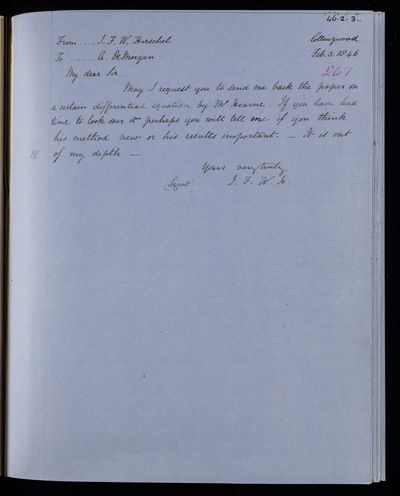 46.2.3.
From . . . J. F. W. Herschel Collingwood
To . . . . A. De Morgan Feb. 3. 1846
My dear Sir. 267
May I request you to send me back the paper on
a certain differential equation by Mr Hearne. If you have had
time to look over it perhaps you will tell me if you think
his method new or his results important. — It is out
of my depth —
Yours very truly
(Signed) J. F. W. H.